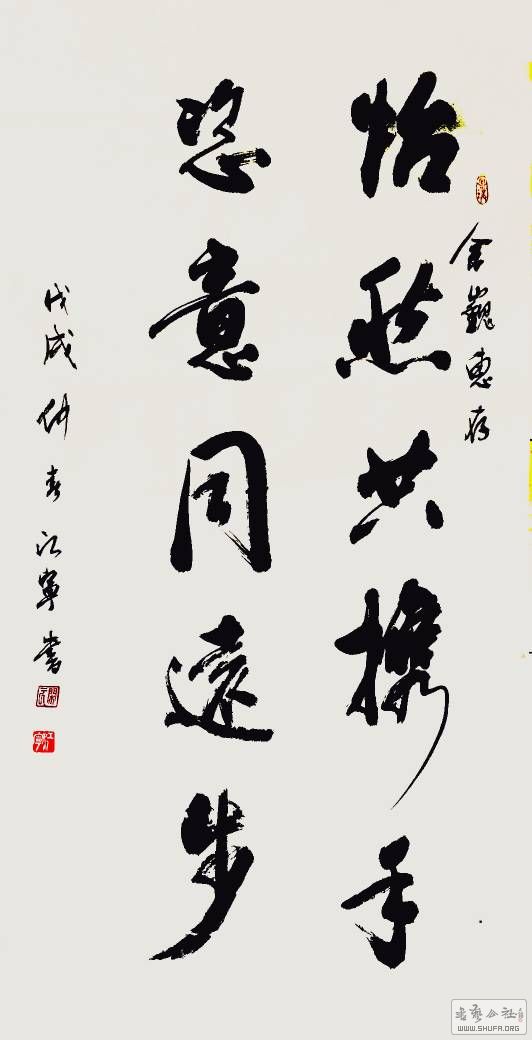 巍惠存
怡然共攜手
恣意同遠步
戊戌仲春江寧書
书艺公社
WWW.SHUFA.ORG